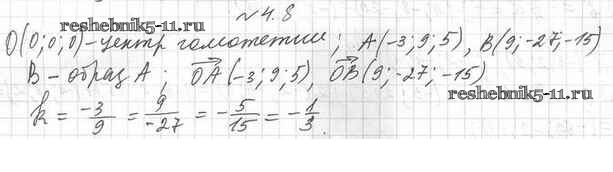 №4.8
reshebnik5-11.ru
O(0;0;0)-центр гомотетии; A(-3;9;5), B(9;-27;-15)
B-образ A; OA(-3;9;5), OB(9;-27;-15)
reshebnik5-11.ru
k = -3/9 = 9/-27 = -5/15 = -1/3.